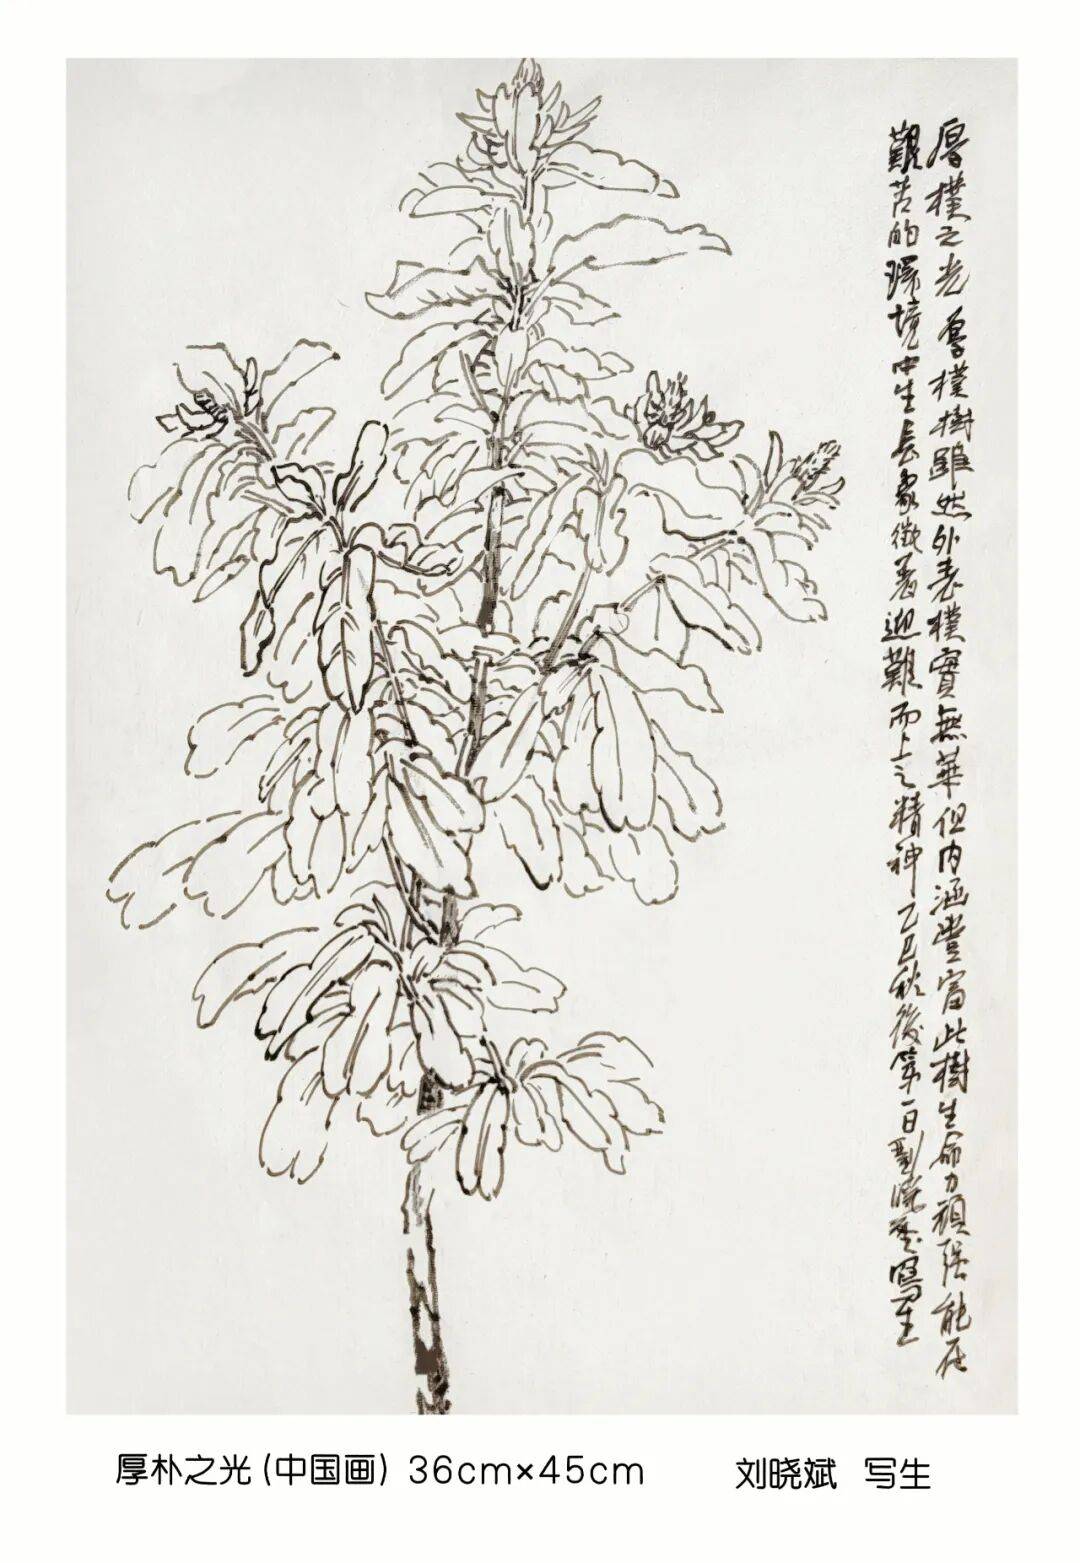 厚樸之光厚樸樹雖然外表樸實無華但内涵豊富此樹生命力頑強能在
艱苦的環境中生長象徵着迎難而上之精神乙巳秋後第一日劉曉斌寫生
厚朴之光(中国画) 36cm×45cm 刘晓斌 写生